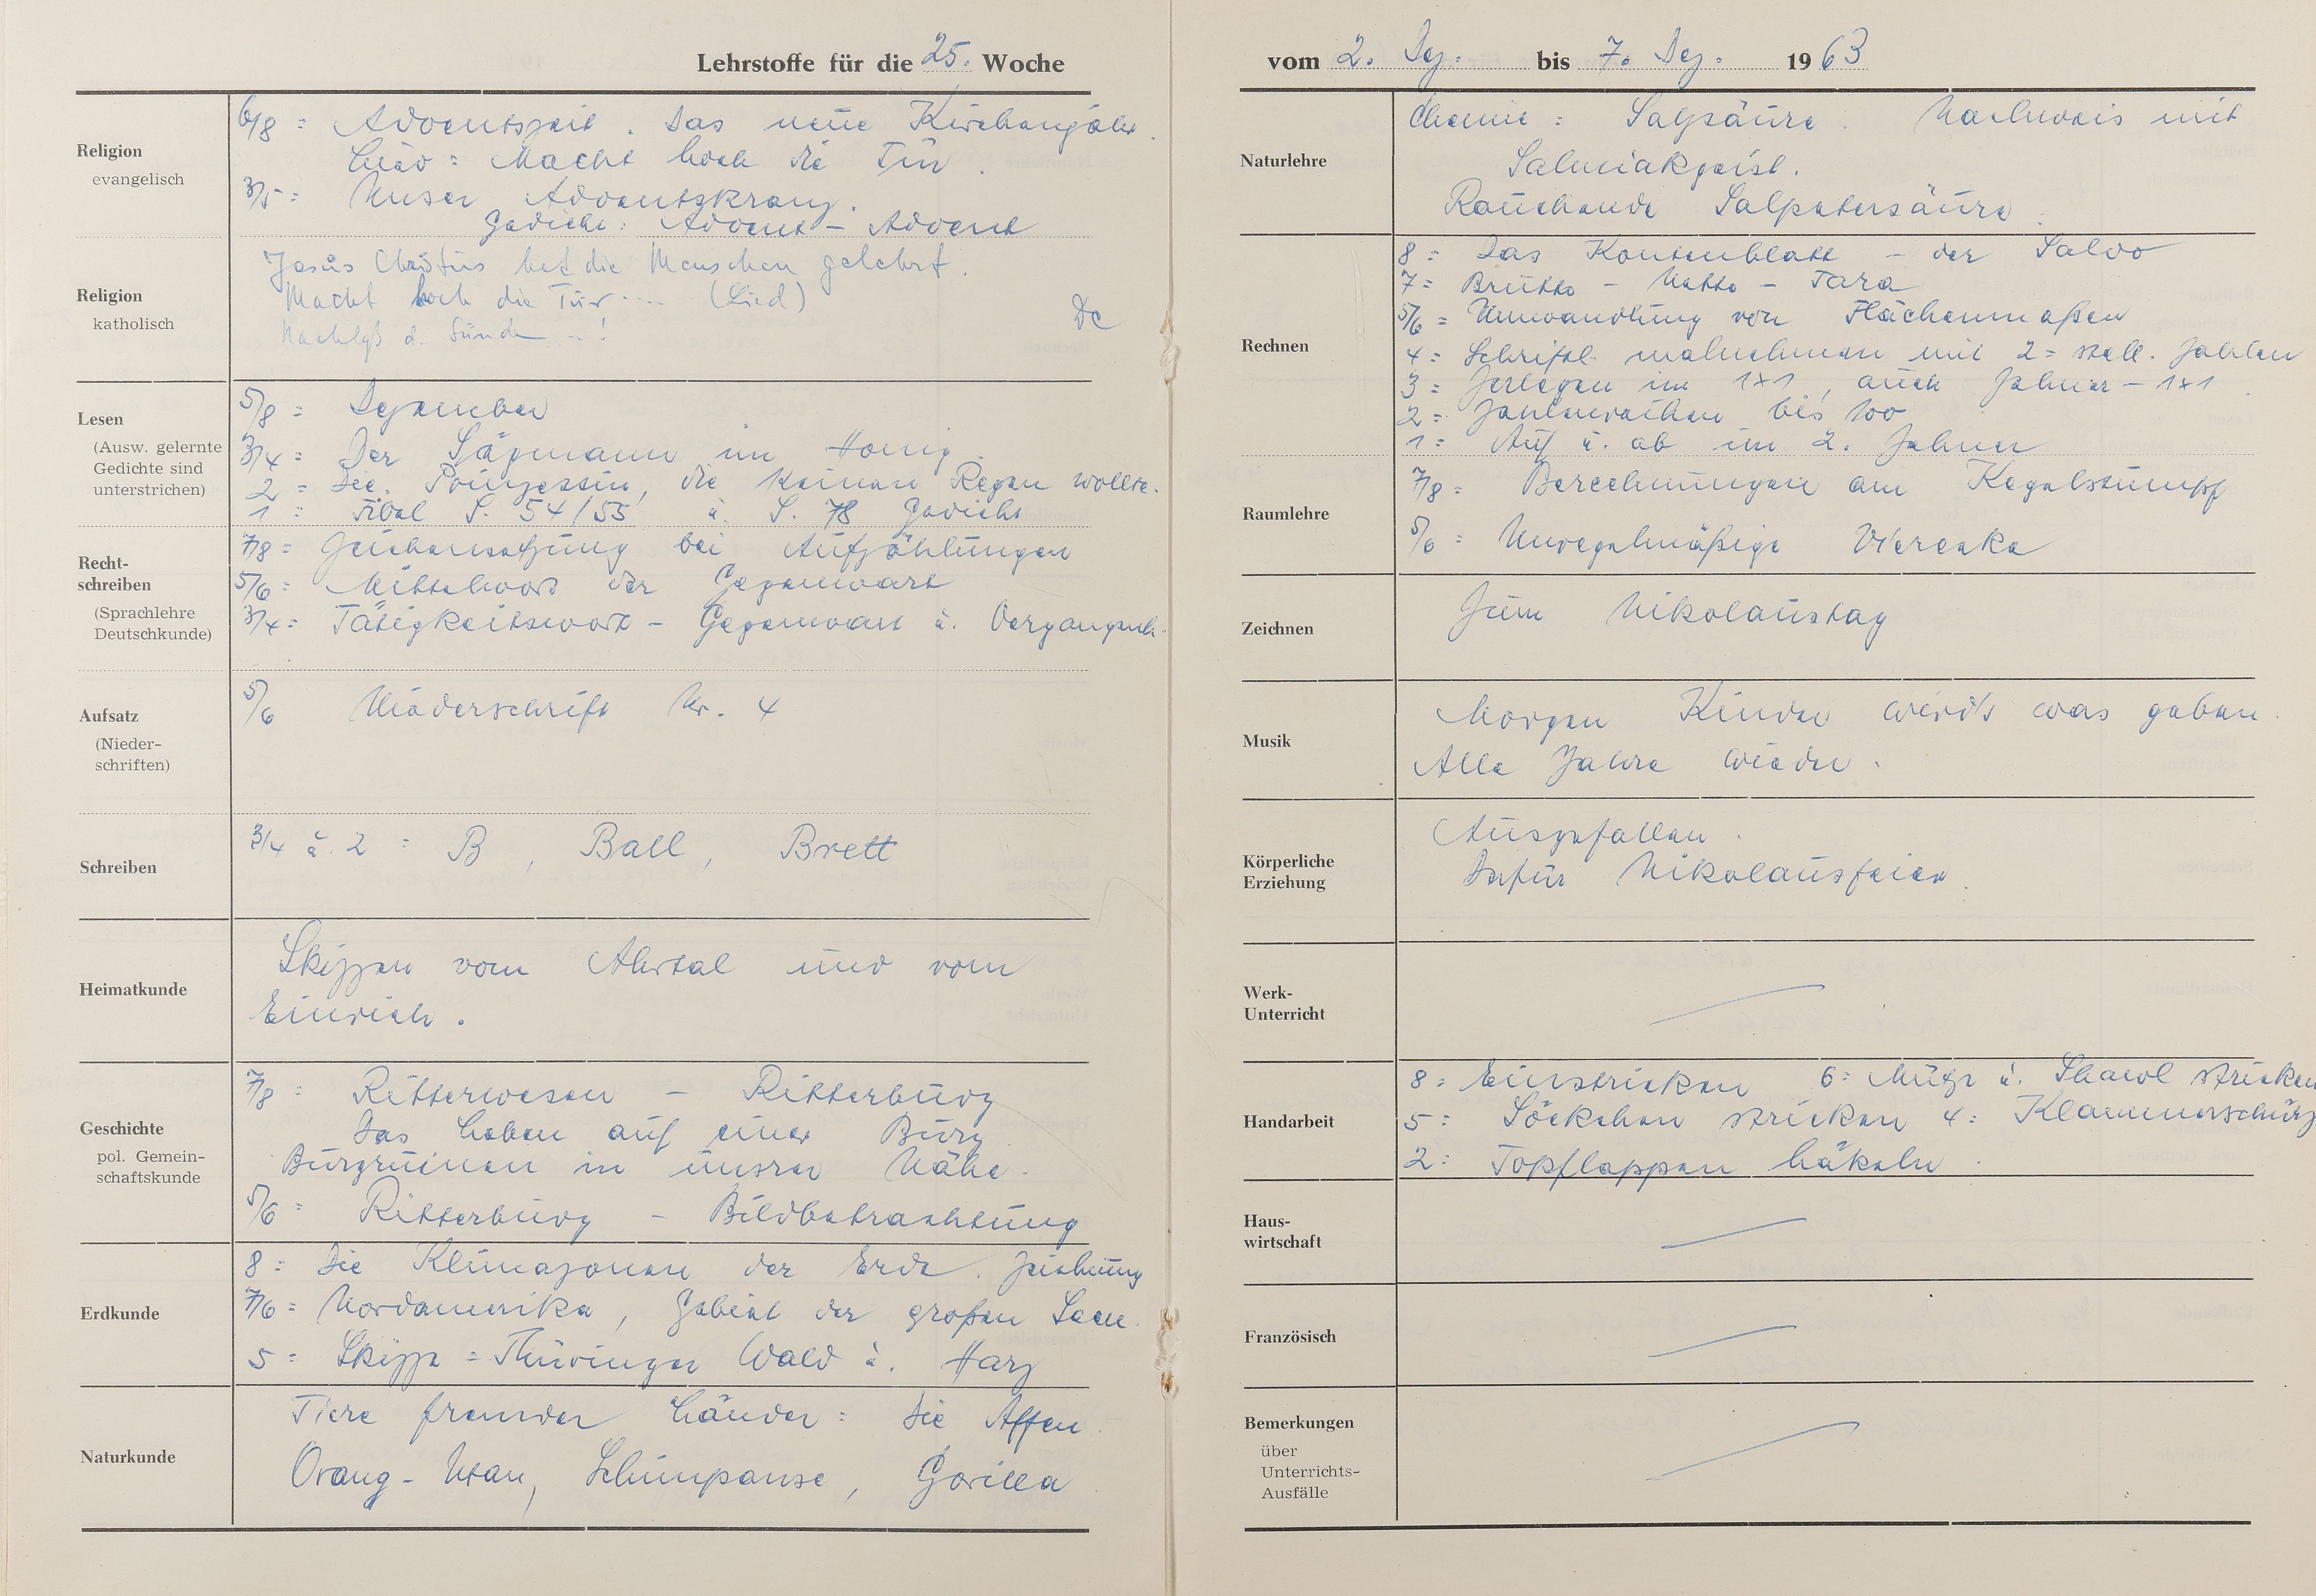 Lehrstoffe für die 25. Woche
Religion
evangelisch
6/8 = Adventszeit. Das neue Kirchenjahr.
Lied = Macht hoch die Tür.
3/5 = Unser Adventskranz.
Gedicht: Advent - Advent
Religion
katholisch
Jesus Christus hat die Menschen gelehrt.
Macht hoch die Tür .... (Lied)
Nachlaß d. Sünden ..!
De
Lesen
(Ausw. gelernte
Gedichte sind
unterstrichen)
5/8 = Dezember
3/4 = Der Sägmann im Honig.
2 = Die Prinzessin, die keinen Regen wollte.
1 = Fibel S. 54/55 u. S. 78 Gedicht
Recht-
schreiben
(Sprachlehre
Deutschkunde)
7/8 = Zeichensetzung bei Aufzählungen
5/6 = Mittelwort der Gegenwart
3/4 = Tätigkeitswort - Gegenwart u. Vergangenh.
Aufsatz
(Nieder-
schriften)
5/6 Niederschrift Nr. 4
Schreiben
3/4 u. 2 = B, Ball, Brett
Heimatkunde
Skizzen vom Ahrtal und vom
Einrich.
Geschichte
pol. Gemein-
schaftskunde
7/8 = Ritterwesen - Ritterburg
Das Leben auf einer Burg
Burgruinen in unsrer Nähe.
5/6 = Ritterburg - Bildbetrachtung
Erdkunde
8 = Die Klimazonen der Erde. Zeichnung
7/6 = Nordamerika, Gebiet der großen Seen.
5 = Skizze = Thüringer Wald u. Harz
Naturkunde
Tiere fremder Länder = Die Affen
Orang-Utan, Schimpanse, Gorilla
vom 2. Dez. bis 7. Dez. 1963
Naturlehre
Chemie = Salzsäure. Nachweis mit
Salmiakgeist.
Rauchende Salpetersäure.
Rechnen
8 = Das Kontenblatt - der Saldo
7 = Brutto - Netto - Tara
5/6 = Umwandlung von Flächenmaßen
4 = Schriftl. malnehmen mit 2=stell. Zahlen
3 = Zerlegen im 1x1, auch Zehner - 1x1
2 = Zahlenreihen bis 100
1 = Auf u. ab im 2. Zehner
Raumlehre
7/8 = Berechnungen am Kegelstumpf
5/6 = Unregelmäßige Vierecke
Zeichnen
Zum Nikolaustag
Musik
Morgen Kinder wird's was geben.
Alle Jahre wieder.
Körperliche
Erziehung
Ausgefallen.
Dafür Nikolausfeier.
Werk-
Unterricht
Handarbeit
8 = Einstricken 6 = Mütze u. Shawl stricken
5 = Söckchen stricken 4 = Klammerschürz
2 = Topflappen häkeln.
Haus-
wirtschaft
Französisch
Bemerkungen
über
Unterrichts-
Ausfälle